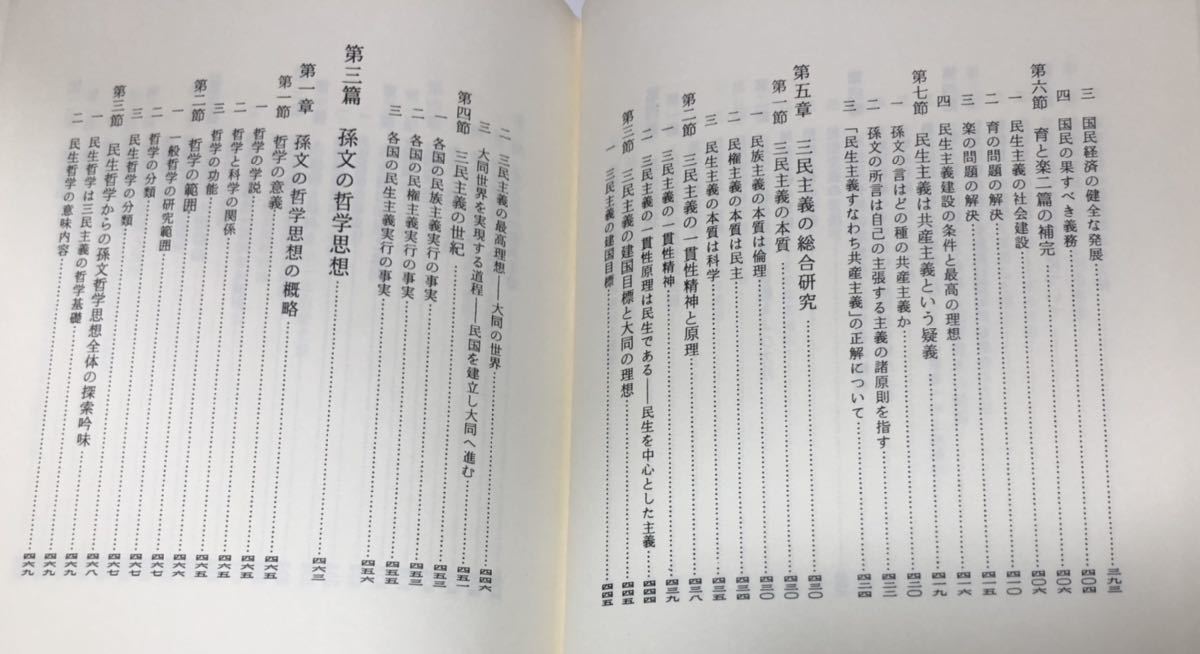 三 国民経済の健全な発展……三九三
四 国民の果すべき義務……四〇四
第六節 育と楽二篇の補完……四〇六
一 民生主義の社会建設……四〇六
二 育の問題の解決……四一〇
三 楽の問題の解決……四一五
四 民生主義建設の条件と最高の理想……四一六
第七節 民生主義は共産主義という疑義……四一九
一 孫文の言はどの種の共産主義か……四二〇
二 孫文の所言は自己の主張する主義の諸原則を指す……四二三
三 「民生主義すなわち共産主義」の正解について……四二四
第五章 三民主義の総合研究……四三〇
第一節 三民主義の本質……四三〇
一 民族主義の本質は倫理……四三〇
二 民権主義の本質は民主……四三四
三 民生主義の本質は科学……四三五
第二節 三民主義の一貫性精神と原理……四三八
一 三民主義の一貫性精神……四三九
二 三民主義の一貫性原理は民生である——民生を中心とした主義……四四四
第三節 三民主義の建国目標と大同の理想……四四五
一 三民主義の建国目標……四四五
二 三民主義の最高理想——大同の世界……四四六
三 大同世界を実現する道程——民国を建立し大同へ進む……四五一
第四節 三民主義の世紀……四五三
一 各国の民族主義実行の事実……四五三
二 各国の民権主義実行の事実……四五五
三 各国の民生主義実行の事実……四五六
第三篇 孫文の哲学思想
第一章 孫文の哲学思想の概略……四六三
第一節 哲学の意義……四六五
一 哲学の学説……四六五
二 哲学と科学の関係……四六五
三 哲学の功能……四六五
第二節 哲学の範囲……四六六
一 一般哲学の研究範囲……四六七
二 哲学の分類……四六七
三 民生哲学の分類……四六七
第三節 民生哲学からの孫文哲学思想全体の探索吟味……四六八
一 民生哲学は三民主義の哲学基礎……四六九
二 民生哲学の意味内容……四六九